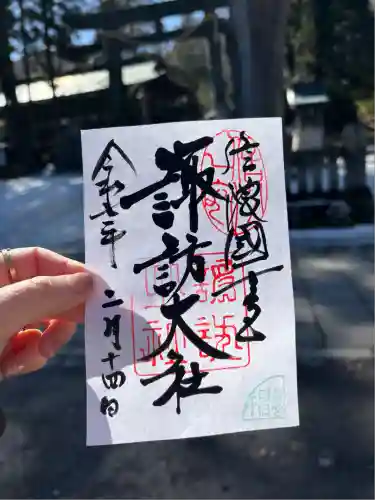 信濃國一之宮
諏訪大社
令和七年 二月十四日